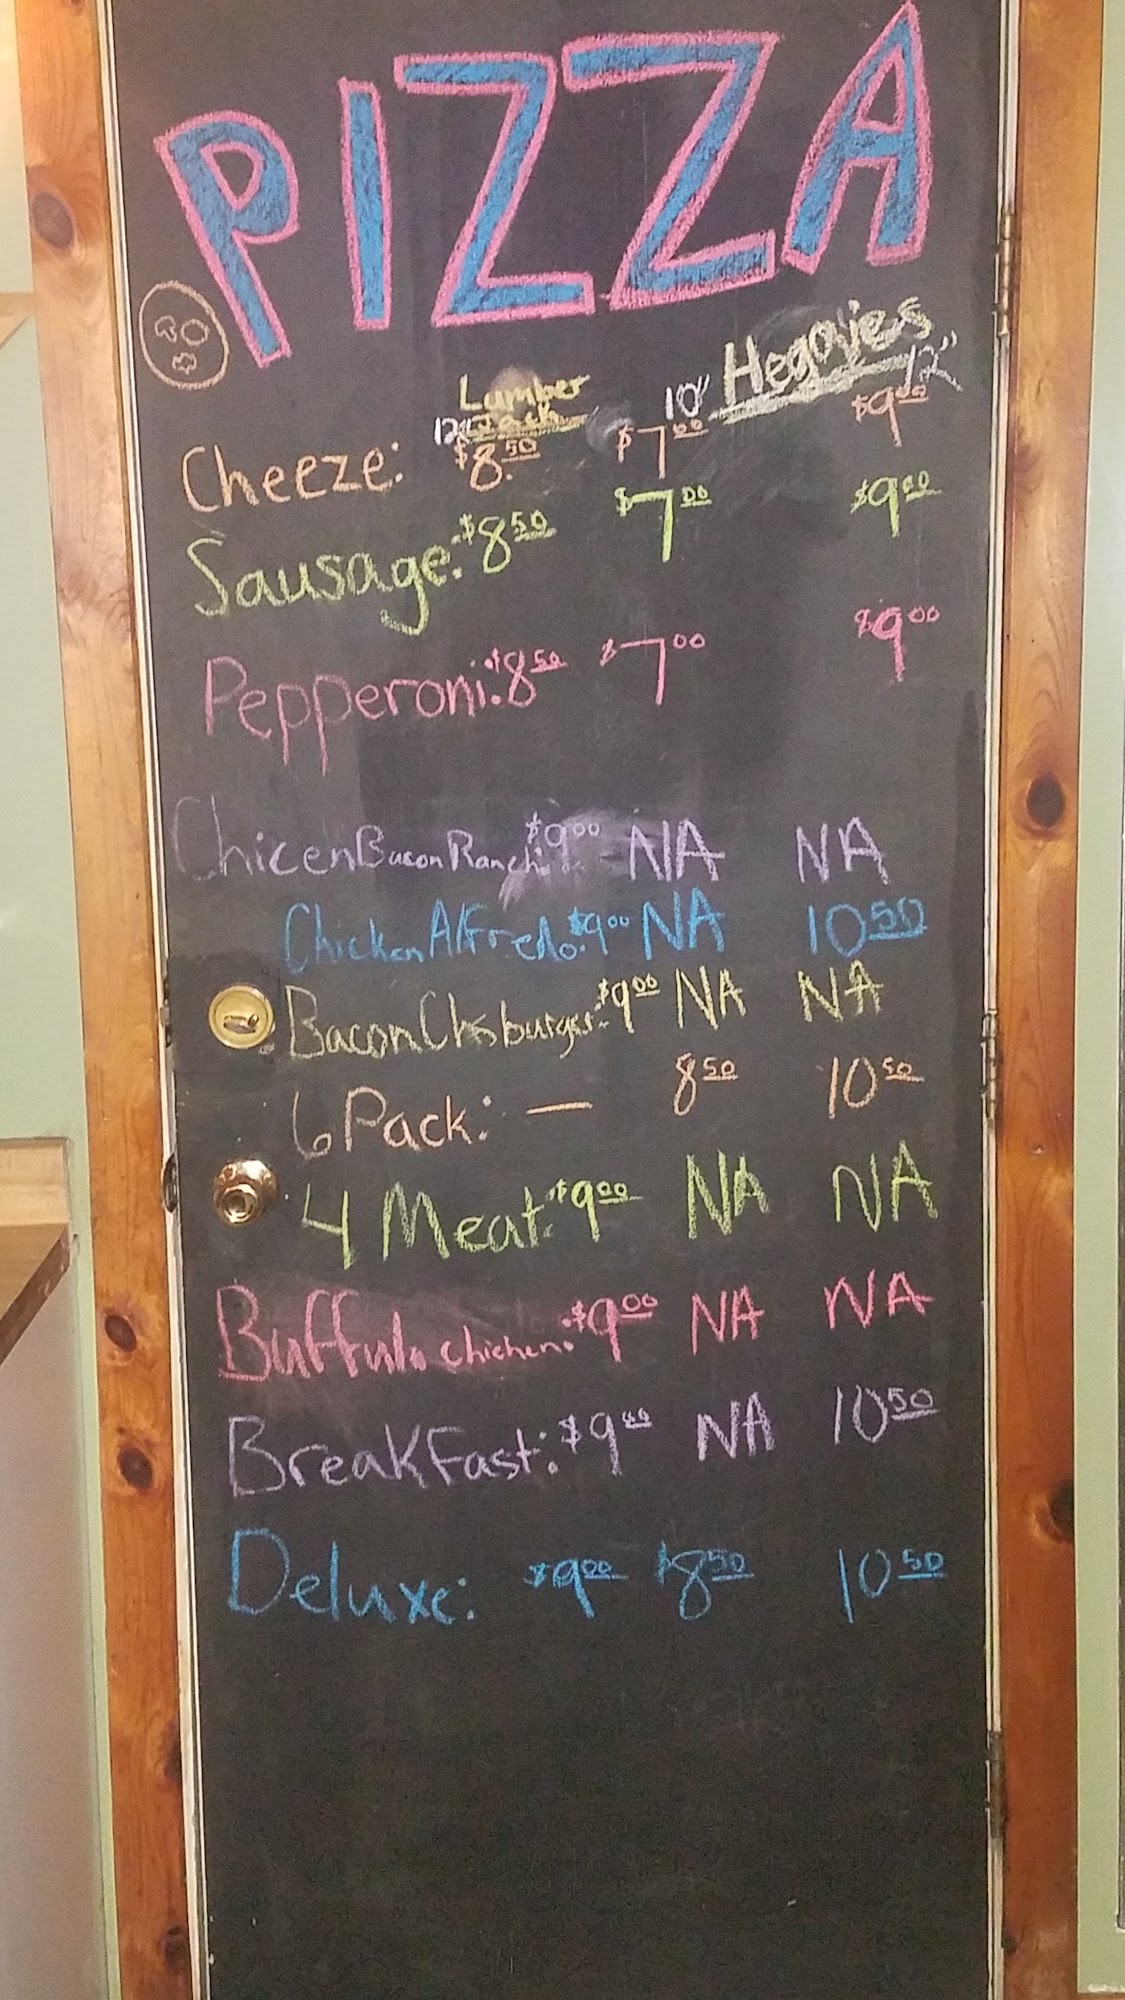 PIZZA
Lumber Jack Heggies
12" 10" 12"
Cheeze: $8.50 $7.00 $9.00
Sausage: $8.50 $7.00 $9.00
Pepperoni: $8.50 $7.00 $9.00
ChicenBaconRanch: $9.00 NA NA
Chicken Alfredo: $9.00 NA 10.50
Bacon Chsburger: $9.00 NA NA
6 Pack: — 8.50 10.50
4 Meat: $9.00 NA NA
Buffulo chicken: $9.00 NA NA
BreakFast: $9.00 NA 10.50
Deluxe: $9.00 $8.50 10.50